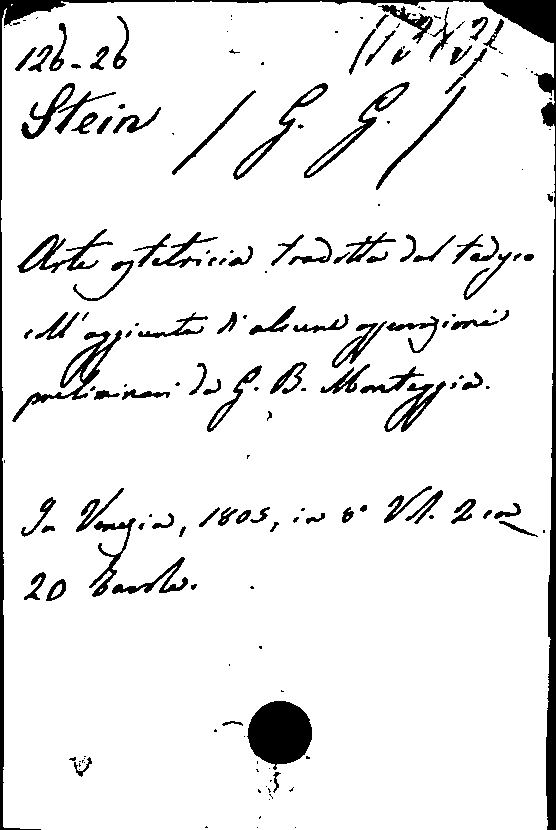 126-26
Stein / G. G. /
Arte ostetricia tradotta dal tedesco
coll'aggiunta di alcune osservazioni
preliminari da G. B. Monteggia.
In Venezia, 1805, in 8° Vol. 2 con
20 tavole.